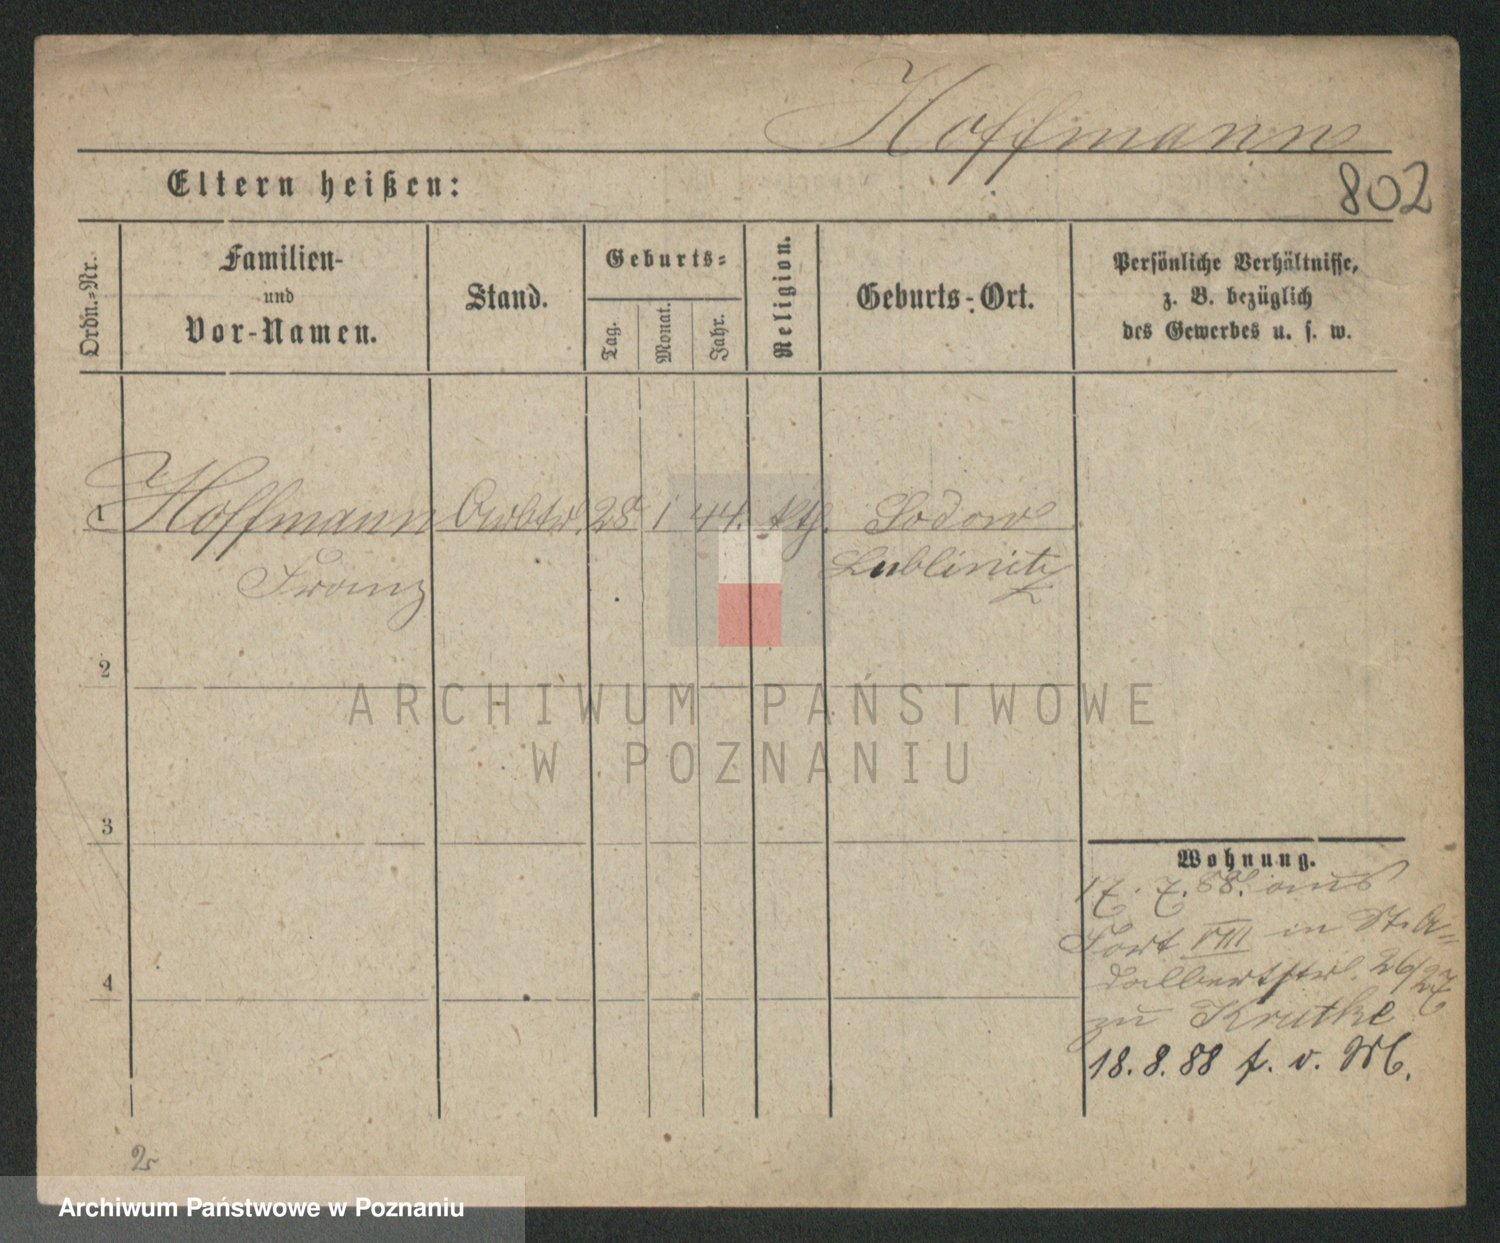 Hoffmann
802
Eltern heißen:
Ordn.=Nr.
Familien-
und
Vor-Namen.
Stand.
Geburts=
Tag.
Monat.
Jahr.
Religion.
Geburts-Ort.
Persönliche Verhältnisse,
z. B. bezüglich
des Gewerbes u. s. w.
1 Hoffmann Arbtr. 28 1 44. kth. Sodow
Franz Lublinitz
2
ARCHIWUM PAŃSTWOWE
W POZNANIU
3
Wohnung.
17. 7. 88. aus
Fort VIII in St. A=
dalbertstr. 26/27
zu Krutke
4
18. 8. 88 f. v. M.
2
Archiwum Państwowe w Poznaniu